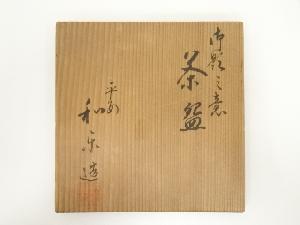 御影之意
茶盌
平安
和楽造